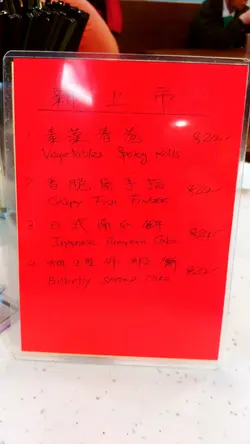 新上市
1 素菜春卷 $20
Vegetables Spring Rolls
2 香脆魚手指 $20
Crispy Fish Finger
3 日式南瓜餅
Japanese Pumpkin Cake
4 蝴蝶
Butterfly shrimp